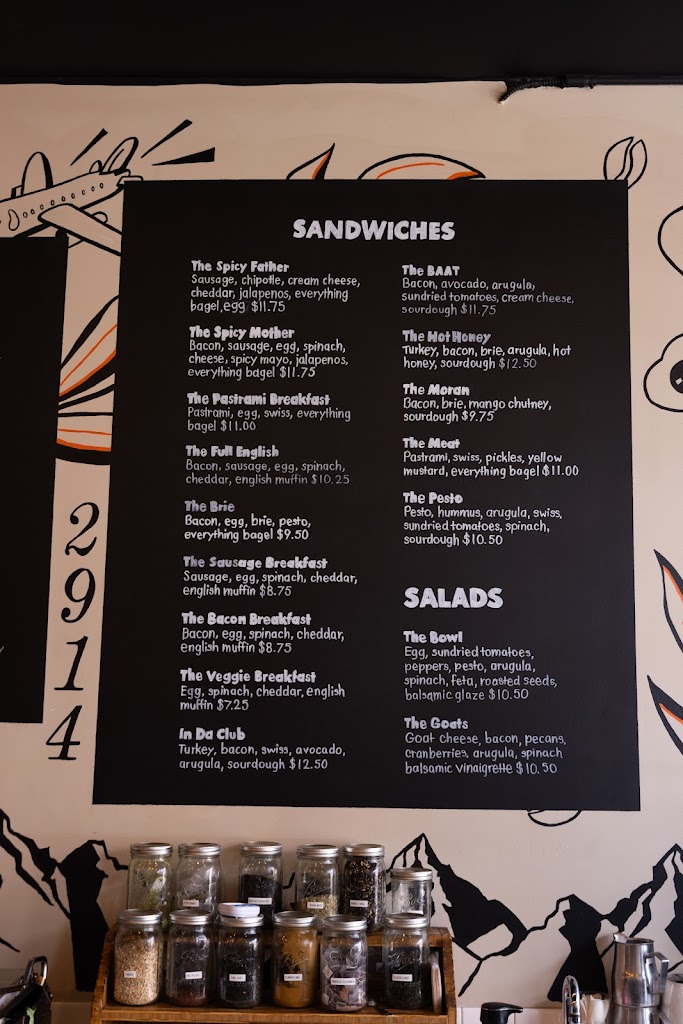 SANDWICHES
The Spicy Father
Sausage, chipotle, cream cheese,
cheddar, jalapenos, everything
bagel, egg $11.75
The Spicy Mother
Bacon, sausage, egg, spinach,
cheese, spicy mayo, jalapenos,
everything bagel $11.75
The Pastrami Breakfast
Pastrami, egg, swiss, everything
bagel $11.00
The Full English
Bacon, sausage, egg, spinach,
cheddar, english muffin $10.25
The Brie
Bacon, egg, brie, pesto,
everything bagel $9.50
The Sausage Breakfast
Sausage, egg, spinach, cheddar,
english muffin $8.75
The Bacon Breakfast
Bacon, egg, spinach, cheddar,
english muffin $8.75
The Veggie Breakfast
Egg, spinach, cheddar, english
muffin $7.25
In Da Club
Turkey, bacon, swiss, avocado,
arugula, sourdough $12.50
The BAAT
Bacon, avocado, arugula,
sundried tomatoes, cream cheese,
sourdough $11.75
The Hot Honey
Turkey, bacon, brie, arugula, hot
honey, sourdough $12.50
The Moran
Bacon, brie, mango chutney,
sourdough $9.75
The Meat
Pastrami, swiss, pickles, yellow
mustard, everything bagel $11.00
The Pesto
Pesto, hummus, arugula, swiss,
sundried tomatoes, spinach,
sourdough $10.50
SALADS
The Bowl
Egg, sundried tomatoes,
peppers, pesto, arugula,
spinach, feta, roasted seeds,
balsamic glaze $10.50
The Goats
Goat cheese, bacon, pecans,
cranberries, arugula, spinach
balsamic vinaigrette $10.50
2914